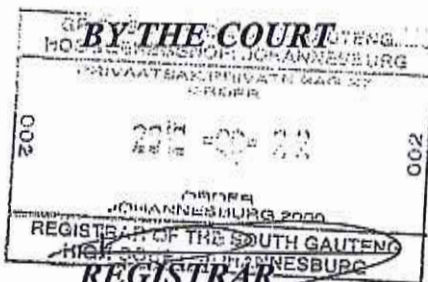 BY THE COURT
JOHANNESBURG
PRIVAATSAK/PRIVATE BAG
ORDER
002
002
ORDER
JOHANNESBURG 2000
REGISTRAR OF THE SOUTH GAUTENG
HIGH COURT JOHANNESBURG
REGISTRAR